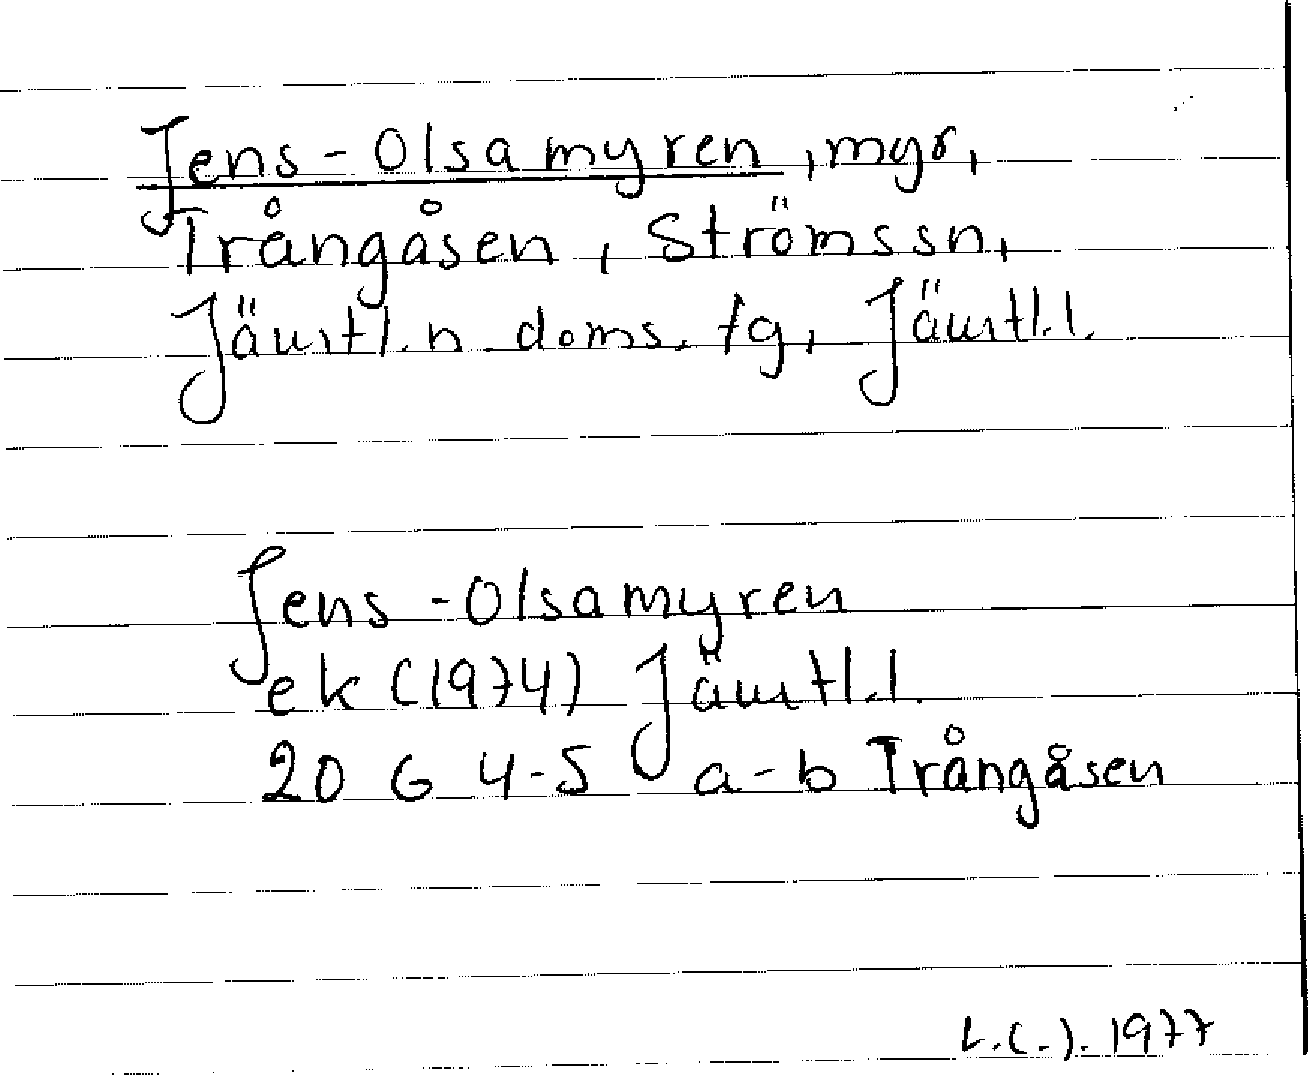 Jens-Olsamyren, myr,
Trångåsen, Strömssn,
Jämtl. n doms. tg, Jämtl. l.
Jens-Olsamyren
ek (1974) Jämtl. l.
20 G 4-5 a-b Trångåsen
L.(.). 1977